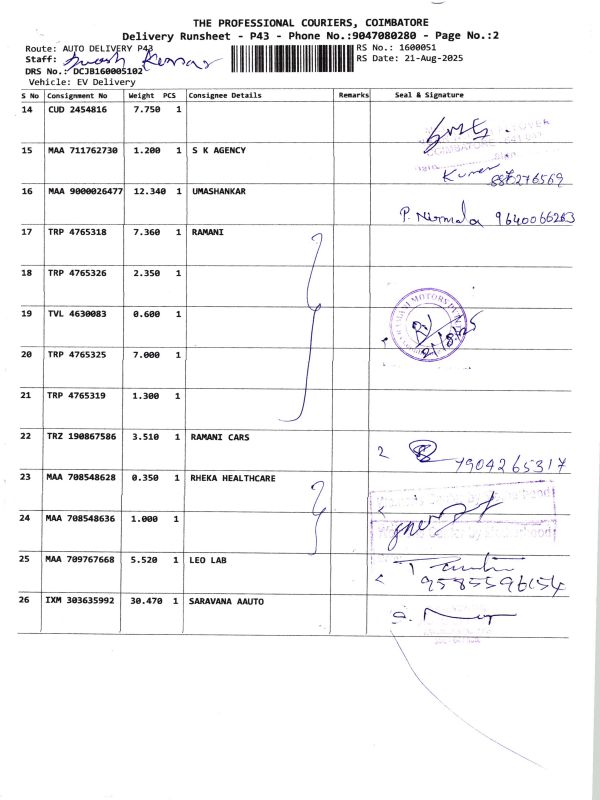 THE PROFESSIONAL COURIERS, COIMBATORE
Delivery Runsheet - P43 - Phone No.:9047080280 - Page No.:2
Route: AUTO DELIVERY P43 RS No.: 1600051
Staff: Kumar RS Date: 21-Aug-2025
DRS No.: DCJB160005102
Vehicle: EV Delivery
S No Consignment No Weight PCS Consignee Details Remarks Seal & Signature
14 CUD 2454816 7.750 1
15 MAA 711762730 1.200 1 S K AGENCY Kumar
16 MAA 9000026477 12.340 1 UMASHANKAR P. Nirmala
17 TRP 4765318 7.360 1 RAMANI
18 TRP 4765326 2.350 1
19 TVL 4630083 0.600 1 21/8/25
20 TRP 4765325 7.000 1
21 TRP 4765319 1.300 1
22 TRZ 190867586 3.510 1 RAMANI CARS 7904265317
23 MAA 708548628 0.350 1 RHEKA HEALTHCARE
24 MAA 708548636 1.000 1
25 MAA 709767668 5.520 1 LEO LAB
26 IXM 303635992 30.470 1 SARAVANA AAUTO